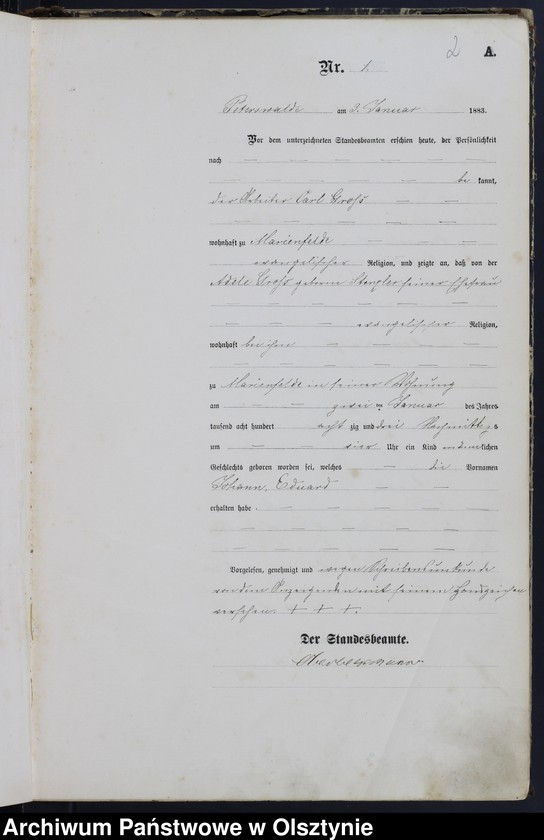 2 A.
Nr. 1.
Peterswalde am 3. Januar 1883.
Vor dem unterzeichneten Standesbeamten erschien heute, der Persönlichkeit
nach
be kannt,
der Arbeiter Carl Groß
wohnhaft zu Marienfelde
evangelischer Religion, und zeigte an, daß von der
Adele Groß geborene Stengler seiner Ehefrau
evangelischer Religion,
wohnhaft bei ihm
zu Marienfelde in seiner Wohnung
am zwei ten Januar des Jahres
tausend acht hundert acht zig und drei Nachmittags
um vier Uhr ein Kind männlichen
Geschlechts geboren worden sei, welches die Vornamen
Johann, Eduard
erhalten habe.
Vorgelesen, genehmigt und wegen Schreibensunkunde
von dem Anzeigenden mit seinem Handzeichen
versehen. + + +.
Der Standesbeamte.
Archiwum Państwowe w Olsztynie